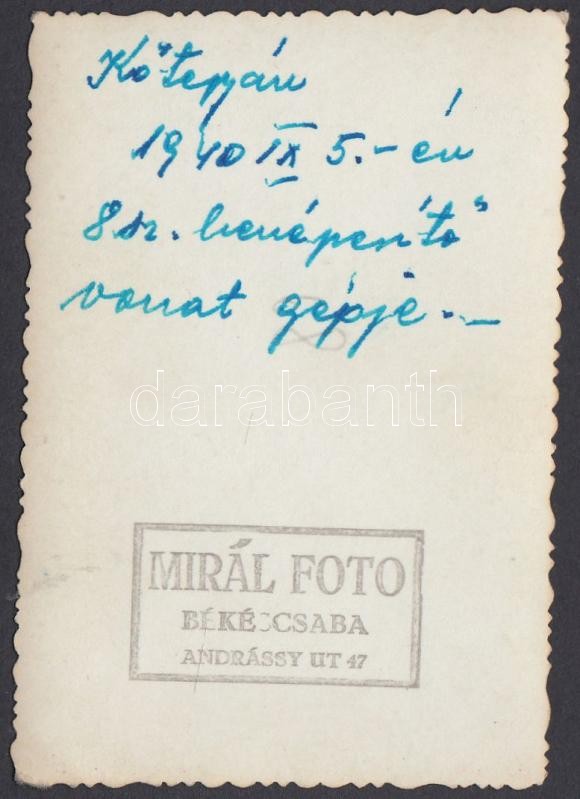 Kötegyán
1940 IX 5.-én
8 sz. benépesítő
vonat gépje.—
darabanth
MIRÁL FOTO
BÉKÉSCSABA
ANDRÁSSY UT 47